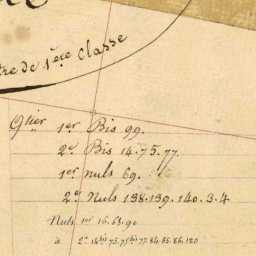 tre de 1ère Classe
Qtier 1er Bis 99.
2e Bis 14.75.77.
1er nuls 69.
2e Nuls 138.139.140.3.4
Nuls 1er 16.63.90
à 2e 14bis 75.75bis 77.84.85.86.120